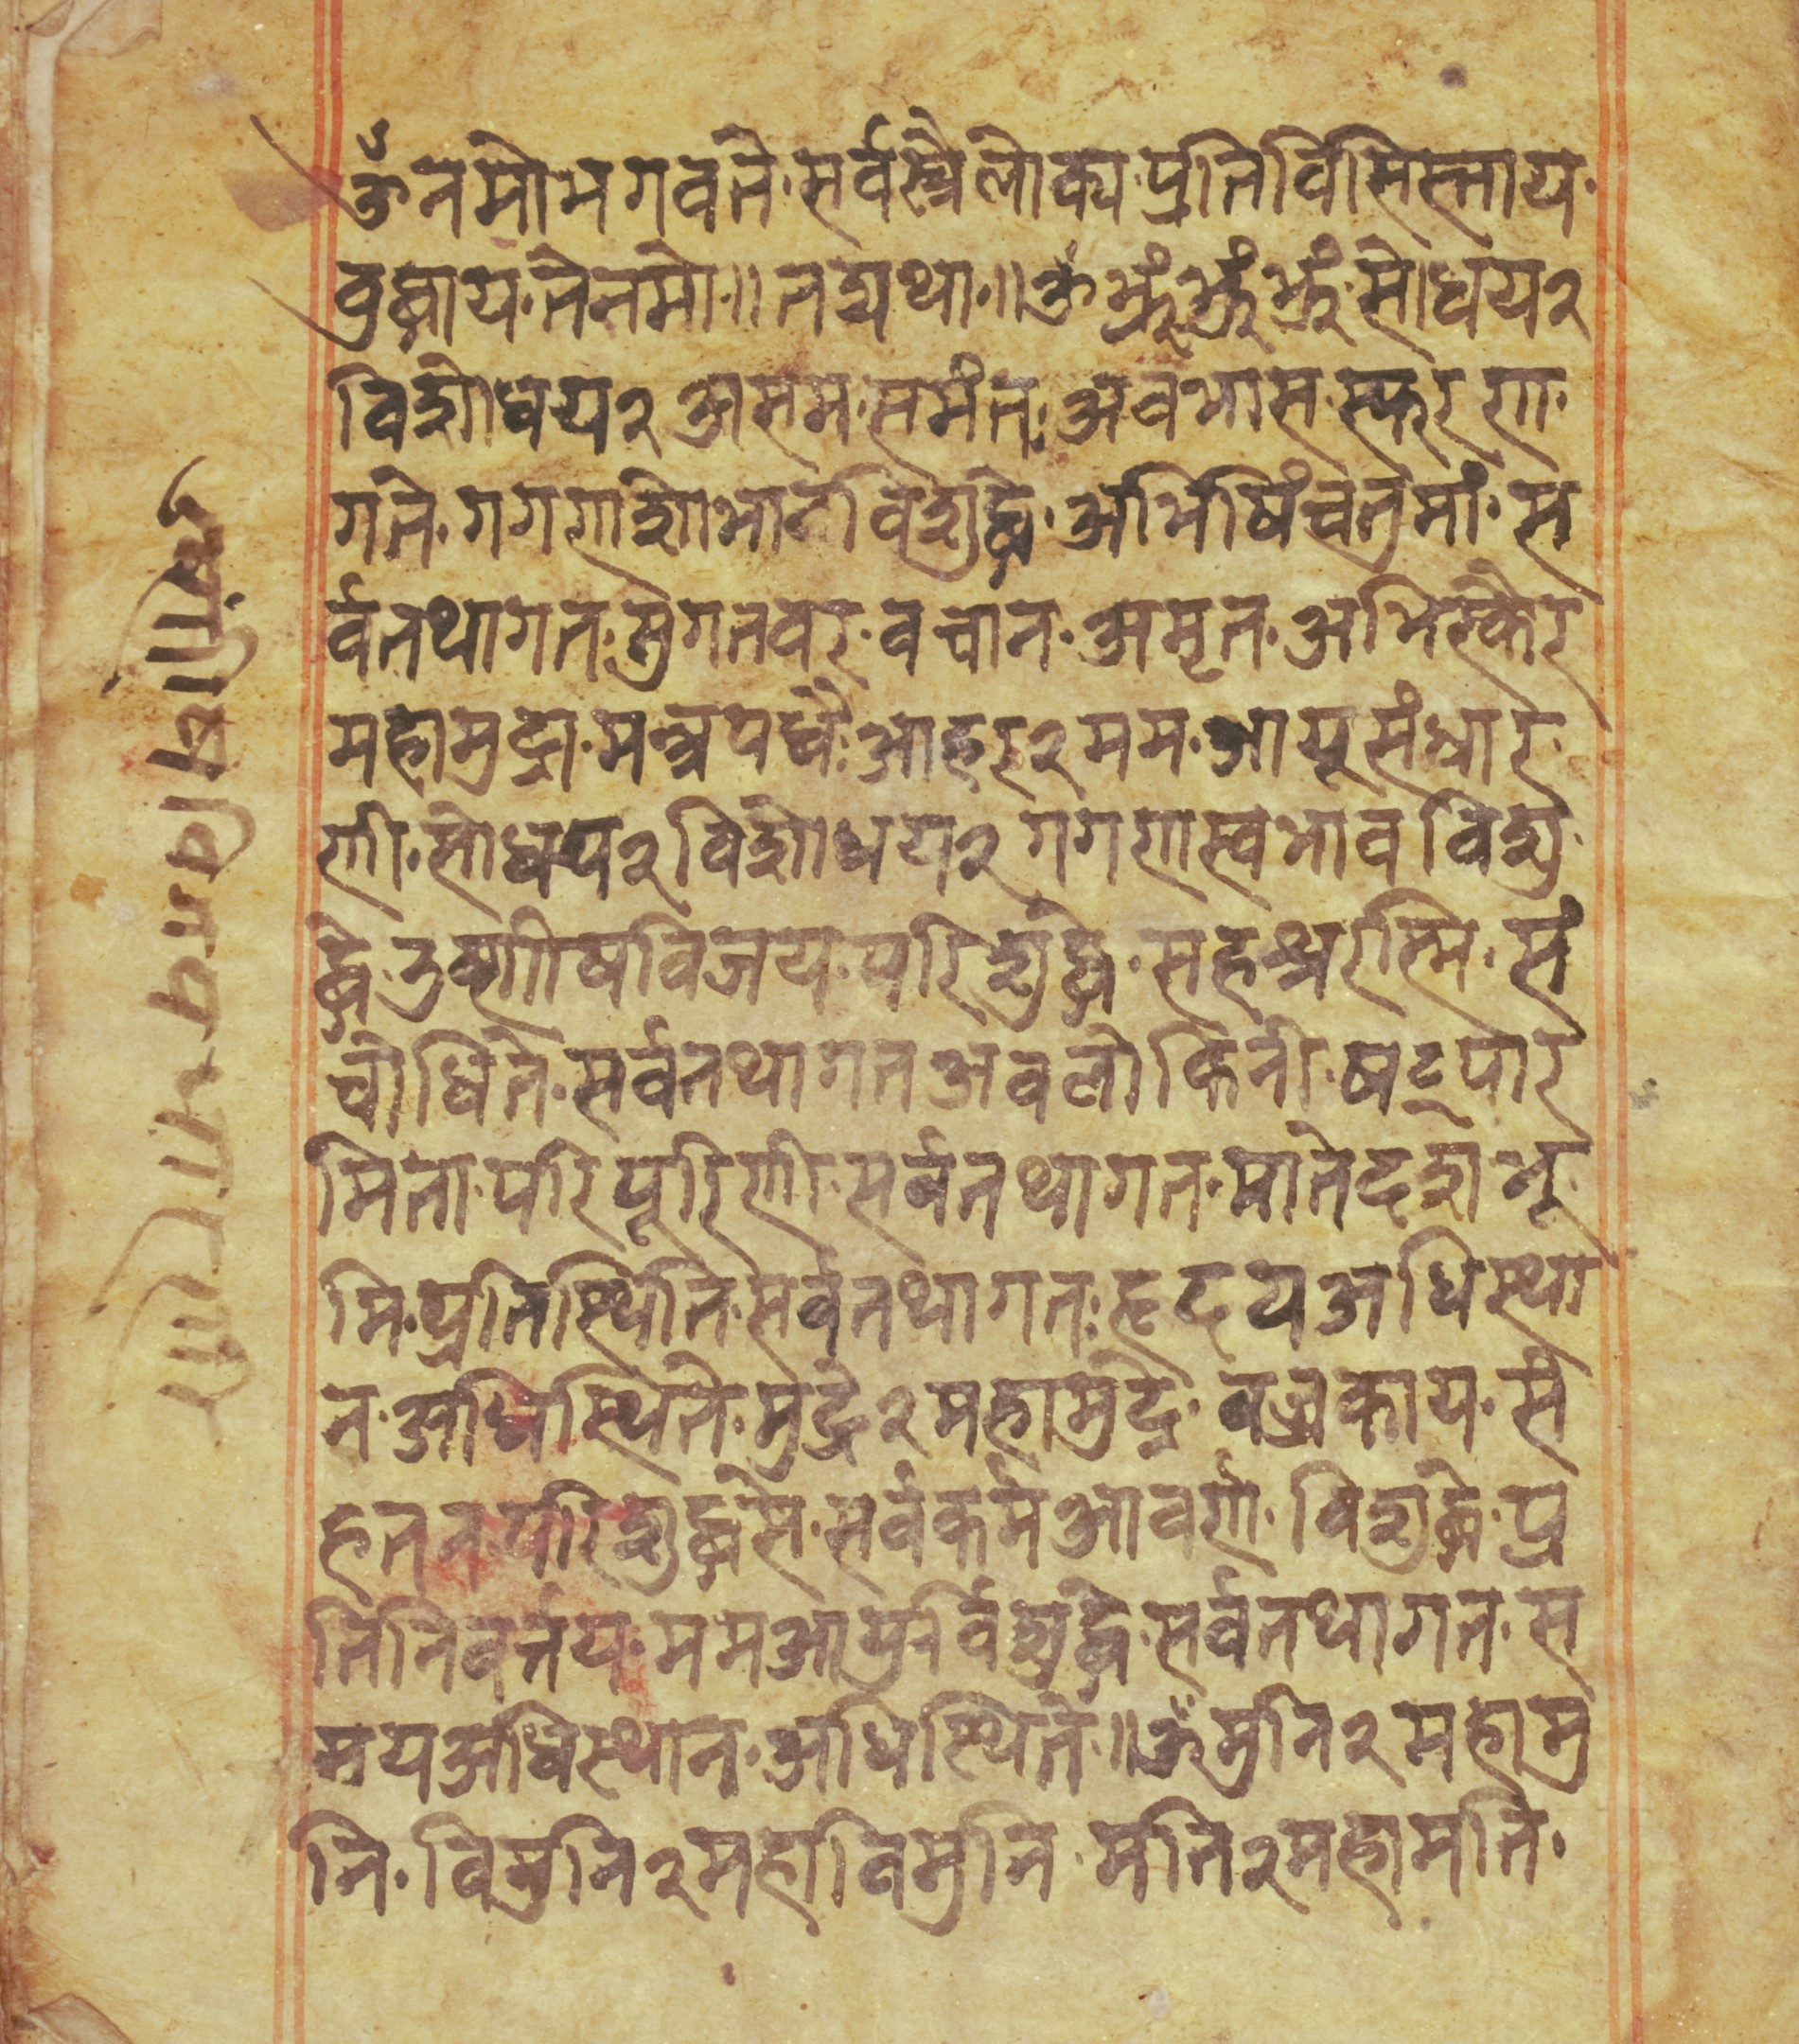 ॐनमोभगवते·सर्वस्त्रैलोक्य·प्रतिविसिस्ताय·
वुद्धाय·तेनमो·॥तद्यथा·॥ॐभ्रूंभ्रूंभ्रूं·सोधय२
विशोधय२असम·समंत·अवभास·स्फरण·
गते·गगणशोभावविशुद्धे·अभिषिंचतुमां·स
र्वतथागत·सुगतवर·वचान·अमृत·अभिस्कैर
महामुद्रा·मन्त्रपधैःआहर२मम·आयूसंधार
णी·सोधय२विशोधय२गगणस्वभावविशु
द्धे·उष्णीषविजय·परिशुद्धे·सहश्ररस्मि·सं
चोधिते·सर्वतथागतअवलोकिनी·षट्पार
मिता·परिपूरिणी·सर्वतथागत·मातेदशेभू
मि·प्रतिस्थिति·सर्वतथागत·हृदयअधिस्था
न·अधिस्थिते·मुद्रे२महामुद्रे·वज्रकाय·सं
हतन·परिशुद्धसे·सर्वकर्मआवर्ण·विशुद्धे·प्र
तिनिवर्त्तय·ममआयुर्विशुद्धे·सर्वतथागत·स
मयअधिस्थान·अधिस्थिते·॥ॐमुनि२महामु
नि·विमुनि२महाविमुनि·मति२महामति·